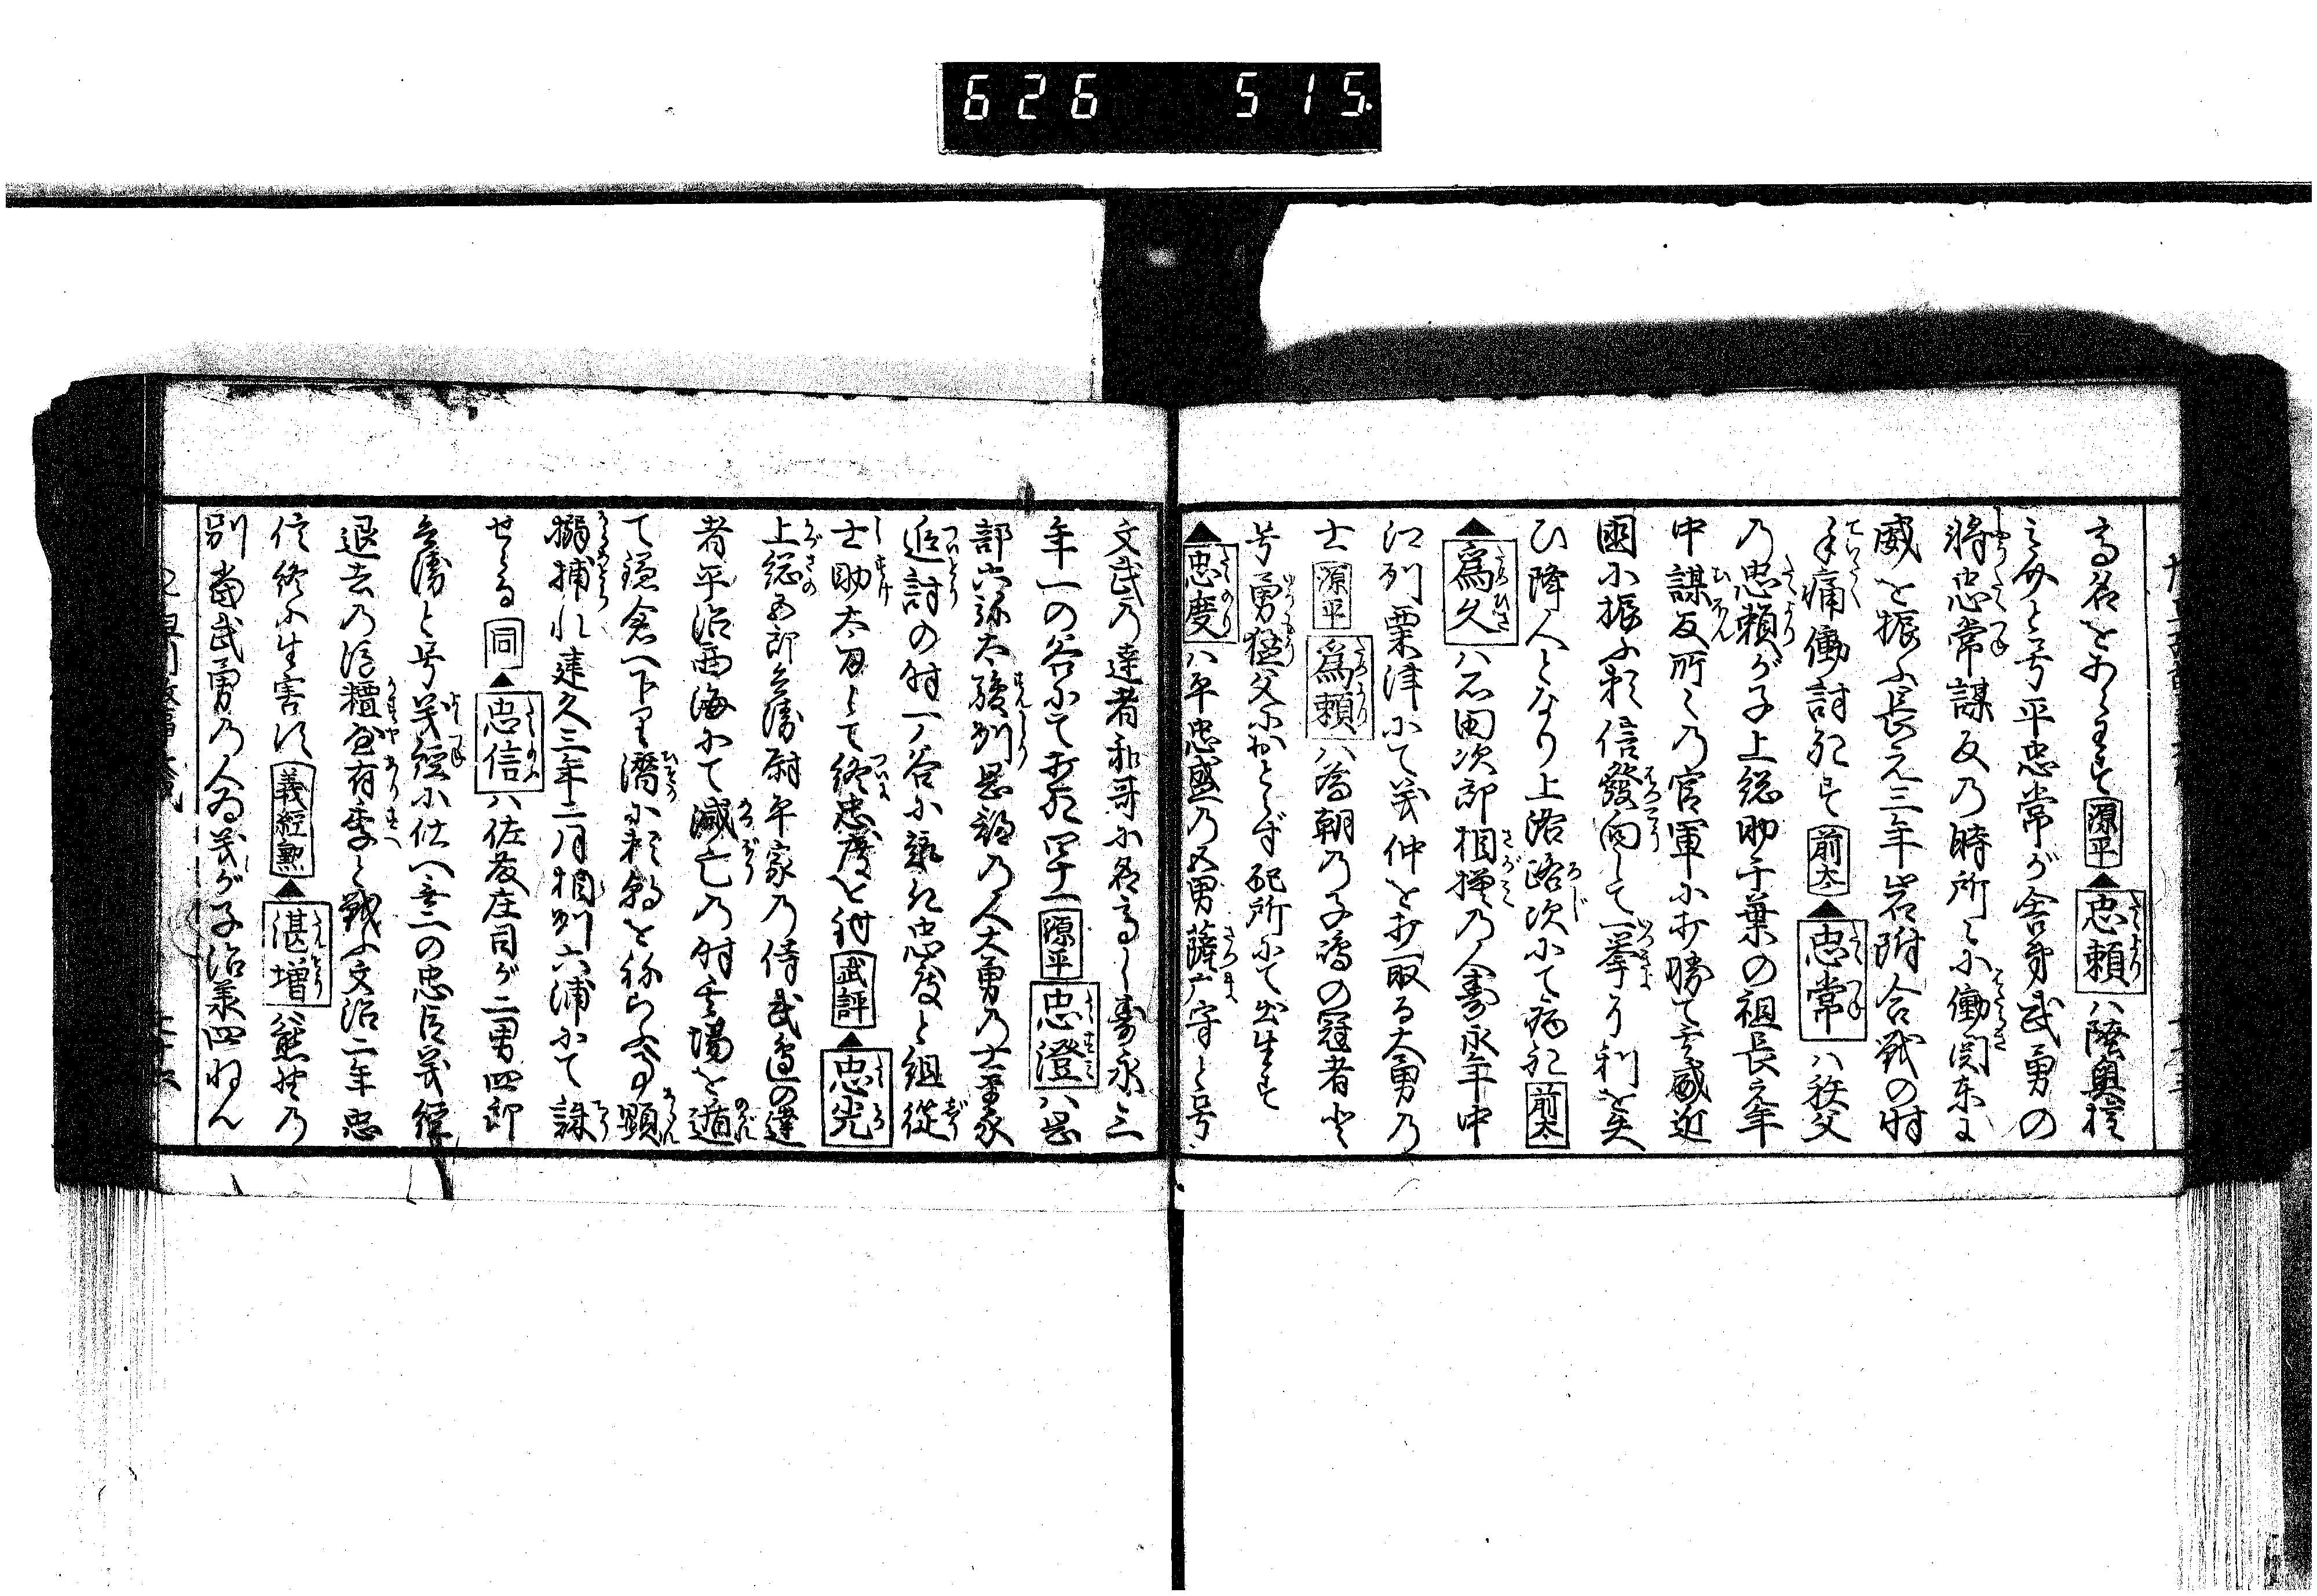 626 515
高名をあらはす 源平 ▲忠頼 ハ陸奥権
之介と号平忠常が舎弟武勇の
将忠常謀反の時所々に働関東に
威を振ふ長元三年岩附合戦の時
手痛働討死す 前太 ▲忠常 ハ秩父
の忠頼が子上総助千葉の祖長元年
中謀反所々の官軍に打勝て威近
國に振ふ頼信發向して一挙に利を失
ひ降人となり上洛路次にて病死 前太
▲爲久 ハ石田次郎相摸の人壽永年中
江州粟津にて義仲を打取る大勇の
士 源平 爲頼 ハ為朝の子嶋の冠者と
号勇猛父におとらず配所にて出生す
▲忠度 ハ平忠盛の五男薩广守と号
文武の達者和哥に名高し壽永三
年一の谷にて打死四十一 源平 忠澄 ハ岡
部六弥太武州岡部の人大勇の士平家
追討の時一ノ谷に忠度と組従
士助太刀して終忠度を討 武評 ▲忠光
上総五郎兵衛尉平家の侍武邊の達
者平治西海にて滅亡の時其場を遁
て鎌倉へ下り潜に頼朝をねらふ事顕
搦捕れ建久三年二月相州六浦にて誅
せらる 同 ▲忠信 ハ佐藤庄司が二男四郎
兵衛と号義経に仕へ無二の忠臣義経
退去の後糟屋有季と戦ふ文治二年忠
信終に生害す 義経勲 ▲湛増 ハ熊野の
別當武勇の人為義が子治承四ねん